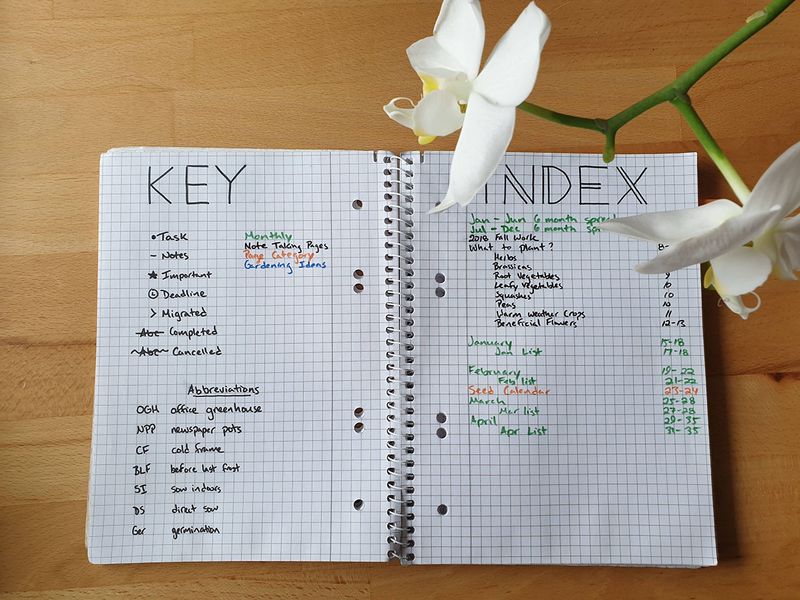 KEY
• Task
– Notes
★ Important
Deadline
> Migrated
Abc Completed
~Abc~ Cancelled
Monthly
Note Taking Pages
Page Category
Gardening Ideas
Abbreviations
OGH office greenhouse
NPP newspaper pots
CF cold frame
BLF before last fast
SI sow indoors
DS direct sow
Ger germination
INDEX
Jan - Jun 6 month spread
Jul - Dec 6 month
2018 Fall Work
What to plant? 8-
Herbs
Brassicas
Root Vegetables 9
Leafy Vegetables 10
Squashes 10
Peas 10
Warm Weather Crops 11
Beneficial Flowers 12-13
January 15-18
Jan List 17-18
February 19-22
Feb list 21-22
Seed Calendar 23-24
March 25-28
Mar list 27-28
April 29-35
Apr List 31-35